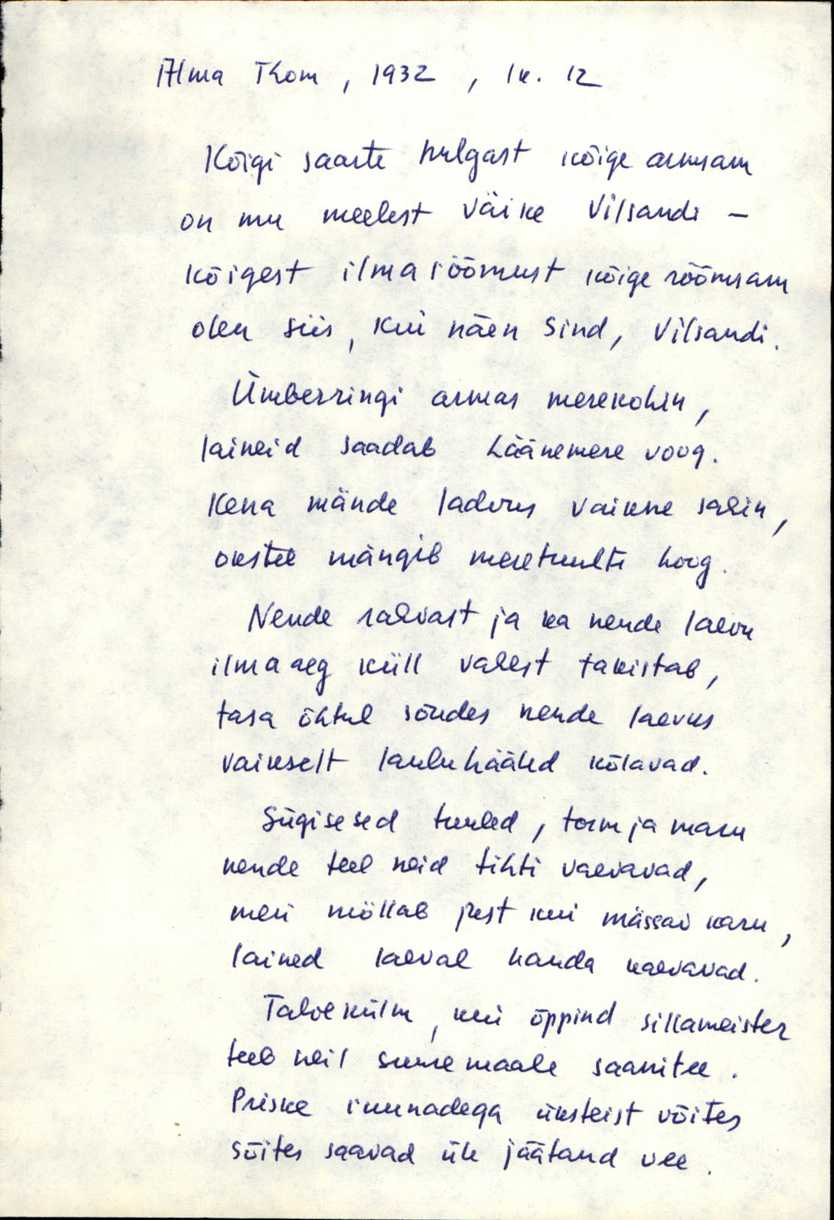 Alma Thom, 1932, lk. 12
Kõigi saarte hulgast kõige armsam
on mu meelest väike Vilsandi –
kõigest ilma rõõmust kõige rõõmsam
olen siis, kui näen Sind, Vilsandi.
Ümberringi armas merekohin,
laineid saadab Läänemere voog.
Kena mände ladvus vaikne sahin,
okstel mängib meretuulte hoog.
Nende rahvast ja ka nende laevu
ilma aeg küll vahest takistab,
tasa õhtul sõudes nende laevus
vaikselt lauluhääled kõlavad.
Sügisesed tuuled, torm ja maru
nende teel neid tihti vaevavad,
meri möllab just kui mässav karu,
lained laeval hauda kaevavad.
Talvekülm, kui õppind sillameister
teeb neil suure maale saanitee.
Priske ruunadega üksteist võites
sõites saavad üle jäätand vee.